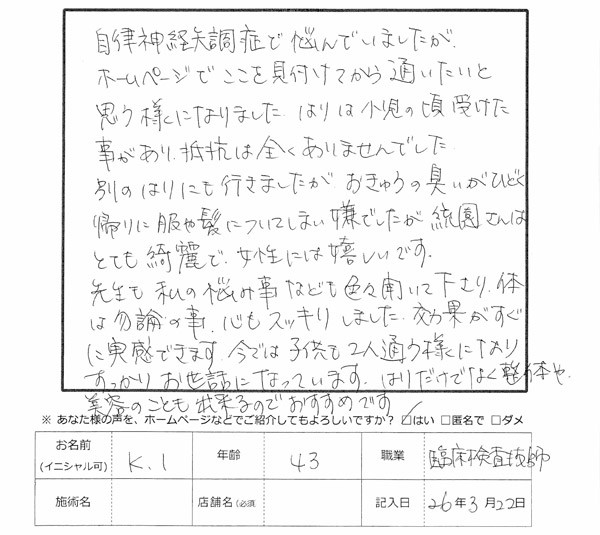 自律神経失調症で悩んでいましたが、
ホームページでここを見付けてから通いたいと
思う様になりました。はりは小児の頃受けた
事があり、抵抗は全くありませんでした。
別のはりにも行きましたがおきゅうの臭いがひどく
帰りに服や髪についてしまい嫌でしたが 絲園さんは
とても綺麗で、女性には嬉しいです。
先生も私の悩み事なども色々聞いて下さり、体
は勿論の事、心もスッキリしました。効果がすぐ
に実感できます。今では子供も2人通う様になり
すっかりお世話になっています。はりだけでなく整体や、
美容のことも出来るのでおすすめです
※ あなた様の声を、ホームページなどでご紹介してもよろしいですか? ☑はい □匿名で □ダメ
お名前 (イニシャル可) K.I 年齢 43 職業 臨床検査技師
施術名 店舗名（必須 記入日 26年3月22日